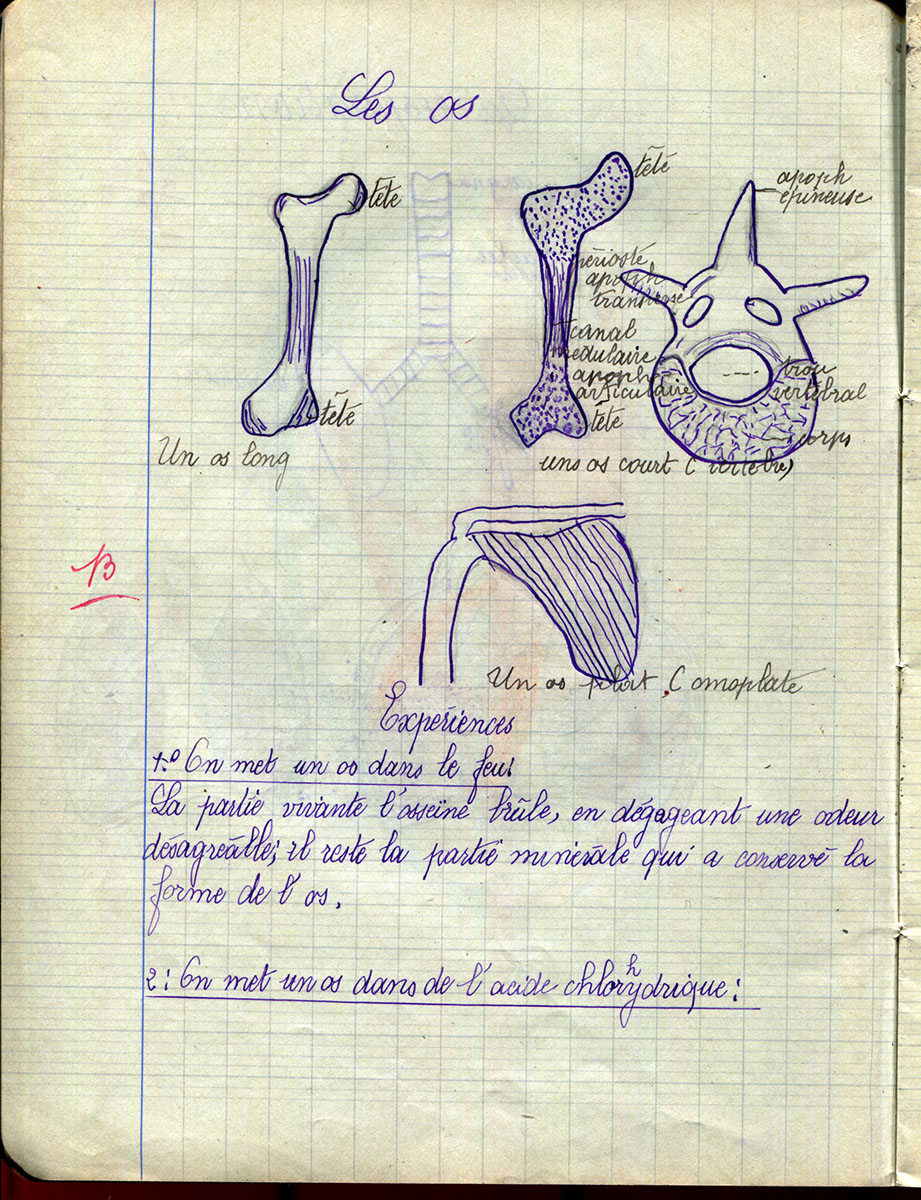 Les os
tête
tête
Un os long
tête
périoste
canal
médulaire
tête
apoph
épineuse
apoph
transverse
apoph
articulaire
trou
vertébral
corps
uns os court ( vertèbre)
B
Un os plat ( omoplate
Expériences
1.º On met un os dans le feu:
La partie vivante l'osseïne brûle, en dégageant une odeur
désagréable; il reste la partie minérale qui a conservé la
forme de l'os.
2: On met un os dans de l'acide chlorhydrique: